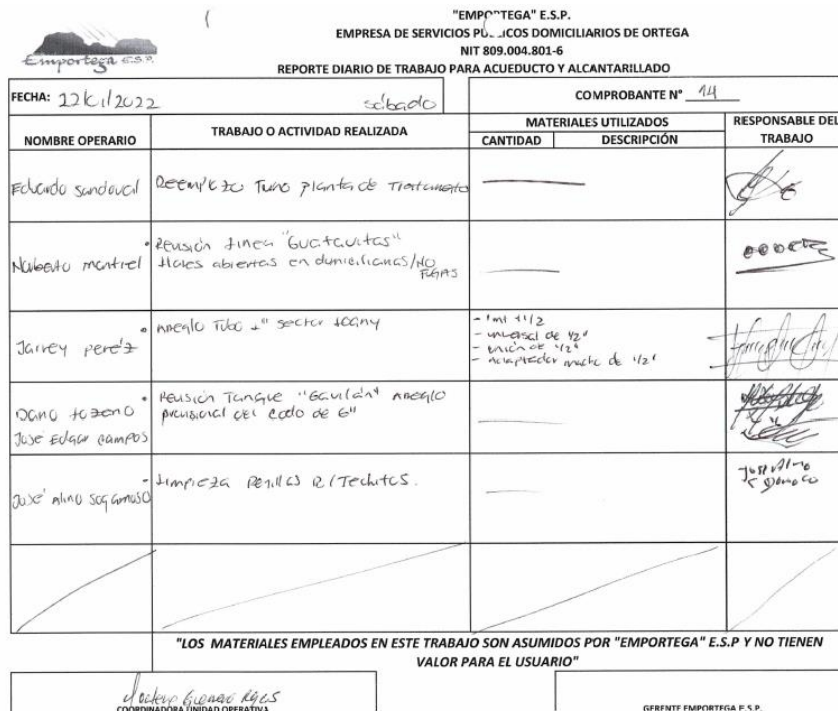 "EMPORTEGA" E.S.P.
EMPRESA DE SERVICIOS PÚBLICOS DOMICILIARIOS DE ORTEGA
NIT 809.004.801-6
Emportega E.S.P.
REPORTE DIARIO DE TRABAJO PARA ACUEDUCTO Y ALCANTARILLADO
FECHA: 22/01/2022 sábado
COMPROBANTE N° 14
NOMBRE OPERARIO
TRABAJO O ACTIVIDAD REALIZADA
MATERIALES UTILIZADOS
CANTIDAD DESCRIPCIÓN
RESPONSABLE DEL
TRABAJO
Eduardo Sandoval Reemplazo Turno Planta de Tratamiento
Norberto Montiel
Revisión Línea "Guatavitas"
llaves abiertas en domiciliarias/NO
FUGAS
Jairey peréz
Arreglo Tubo 1" sector
- 1mt 1 1/2
- universal de 1/2"
- unión de 1/2"
- Adaptador macho de 1/2"
Dario Lozano
José Edgar Campos
Revisión Tanque "Gavilán" Arreglo
provisional del codo de 6"
José Alino Sogamoso
Limpieza Rejillas R/Techitos.
José Alino
"LOS MATERIALES EMPLEADOS EN ESTE TRABAJO SON ASUMIDOS POR "EMPORTEGA" E.S.P Y NO TIENEN
VALOR PARA EL USUARIO"
COORDINADORA UNIDAD OPERATIVA
GERENTE EMPORTEGA E.S.P.